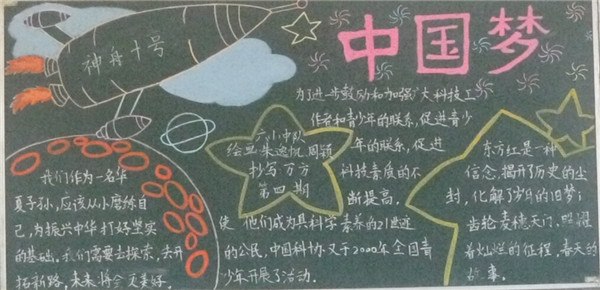 神舟十号
中国梦
为了进一步鼓励和加强广大科技工
作者和青少年的联系,促进青少
年的联系,促进
科技素质的不
断提高.
使 他们成为具科学素养的21世纪
的公民,中国科协又于2000年全国青
少年开展了活动.
六小中队
绘画朱逸帆 周颖
抄写 万方
第四期
我们作为一名华
夏子孙,应该从小磨练自
己,为振兴中华打好坚实
的基础.我们需要去探索,去开
拓新路,未来将会更美好.
东方红是一种
信念,揭开了历史的尘
封,化解了岁月的旧梦;
齿轮麦穗天门、照耀
着灿烂的征程,春天的
故事.